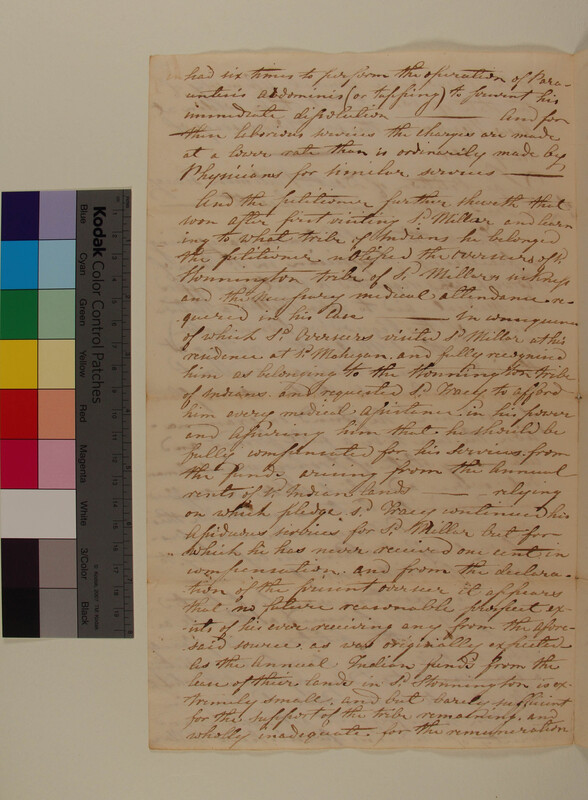 had six times to perform the operation of Para-
centisis abdominis (or tapping) to prevent his
immediate dissolution —— and for
their laborious services the charges are made
at a lower rate than is ordinarily made by
Physicians for similar services ——
And the petitioner further sheweth that
soon after first visiting Sd. Millar and learn
ing to what tribe of Indians he belonged
the petitioner notified the Overseers of the
Stonnington tribe of Sd. Millars sickness
and the necessary medical attendance re-
quired in his case —— in consequence
of which Sd. Overseers visited Sd. Millar at his
residence at Sd. Mohegan, and fully recognised
him as belonging to the Stonnington tribe
of Indians, and requested Sd. Tracy to afford
him every medical assistance in his power
and assuring him that he should be
fully compensated for his services, from
the funds arising from the annual
rents of Sd. Indian lands —— relying
on which pledge Sd. Tracy continued his
assiduous services for Sd. Millar but for
which he has never received one cent in
compensation and from the declara-
tion of the present overseer it appears
that no future reasonable prospect ex-
ists of his ever receiving any from the afore-
said source, as was originally expected
as the Annual Indian funds from the
lease of their lands in Sd. Stonnington is ex-
tremely small, and but barely sufficient
for the support of the tribe remaining, and
wholly inadequate, for the remuneration
Kodak Color Control Patches
Blue
Cyan
Green
Yellow
Red
Magenta
White
3/Color
Black